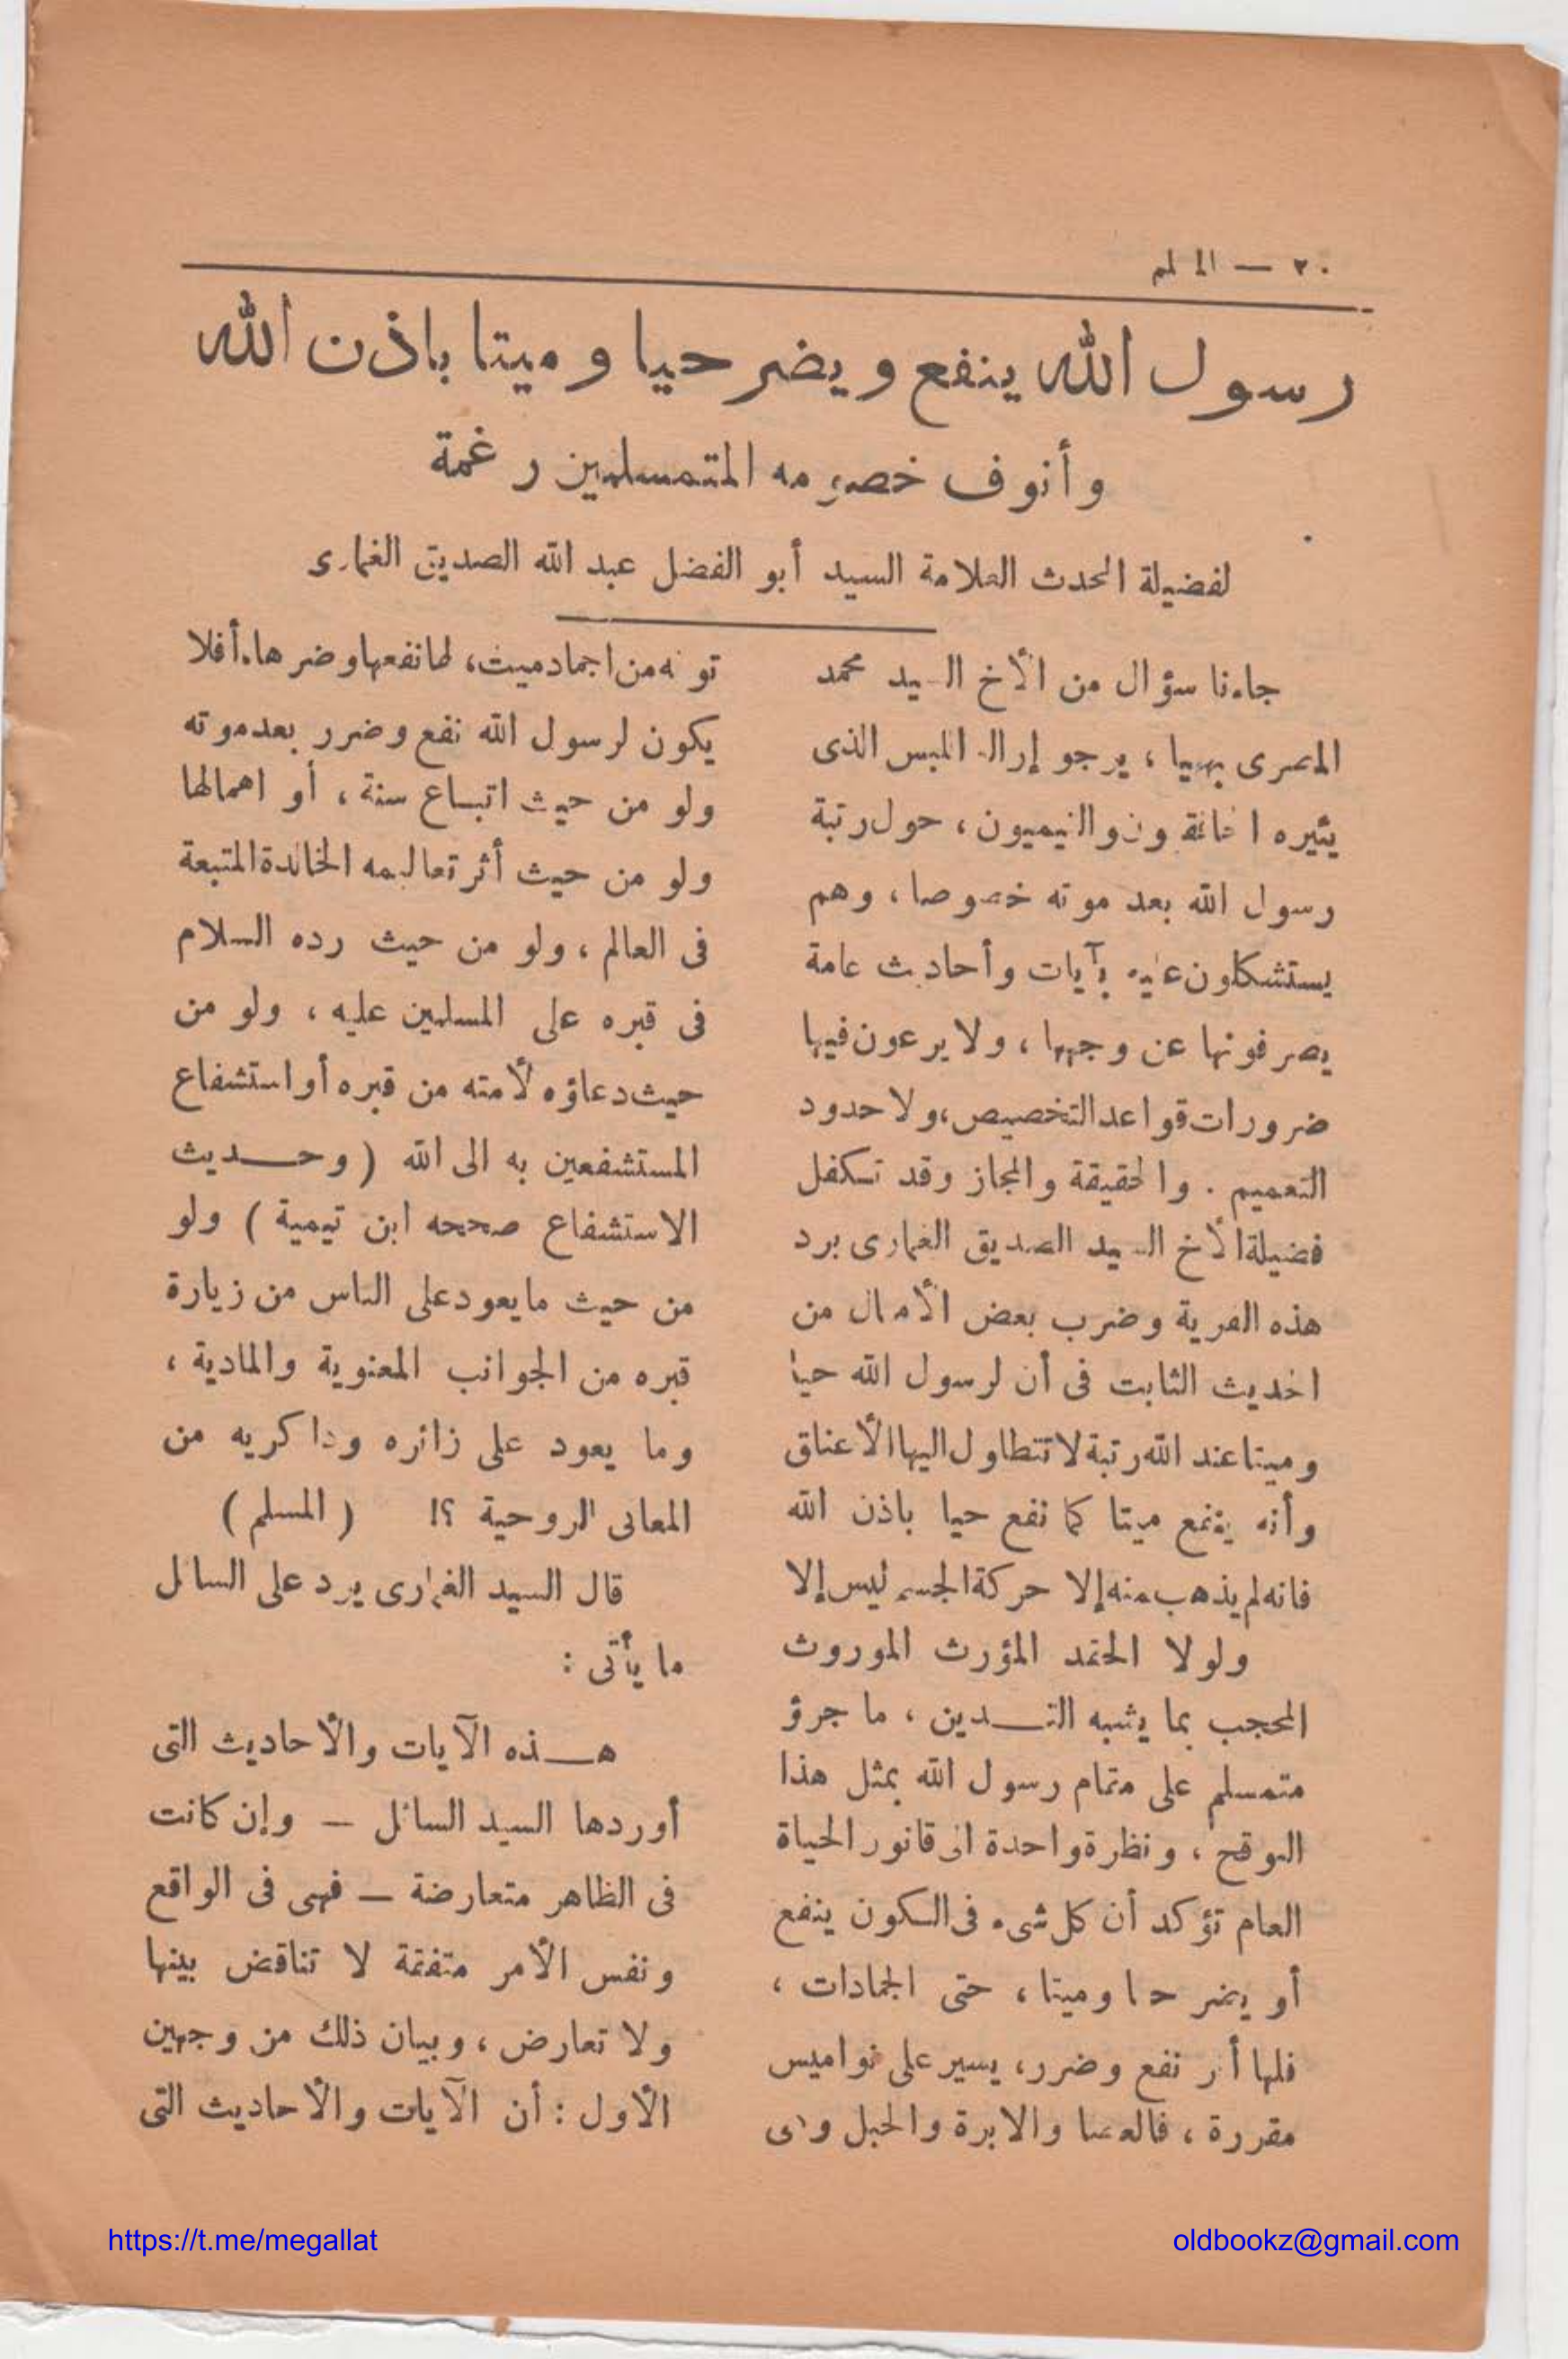 ٢٠ — المسلم
رسول الله ينفع ويضر حيا وميتا باذن الله
وأنوف خصومه المتمسلمين رغمة
لفضيلة المحدث العلامة السيد أبو الفضل عبد الله الصديق الغمارى
جاءنا سؤال من الأخ السيد محمد
المصرى بههيا ، يرجو إزالة اللبس الذى
يثيره والتيميون ، حول رتبة
رسول الله بعد موته خصوصا ، وهم
يستشكلون عليه بآيات وأحاديث عامة
يصرفونها عن وجهها ، ولا يرعون فيها
ضرورات قواعد التخصيص ، ولا حدود
التعميم . والحقيقة والمجاز وقد تكفل
فضيلة الأخ السيد الصديق الغمارى برد
هذه الفرية وضرب بعض الأمثال من
الحديث الثابت فى أن لرسول الله حيا
وميتا عند الله رتبة لا تتطاول اليها الأعناق
وأنه ينفع ميتا كما نفع حيا باذن الله
فانه لم يذهب منه إلا حركة الجسم ليس إلا
ولولا الحقد المؤرث الموروث
المحجب بما يشبه التـــدين ، ما جرؤ
متمسلم على مقام رسول الله بمثل هذا
التوقح ، ونظرة واحدة الى قانون الحياة
العام تؤكد أن كل شىء فى الكون ينفع
أو يضر حيا وميتا ، حتى الجمادات ،
فلها أثر نفع وضرر ، يسير على نواميس
مقررة ، فالعصا والابرة والحبل
من اجماد ميت ، لها نفعها وضرها . أفلا
يكون لرسول الله نفع وضرر بعد موته
ولو من حيث اتبـاع سنة ، أو اهمالها
ولو من حيث أثر تعاليمه الخالدة المتبعة
فى العالم ، ولو من حيث رده السلام
فى قبره على المسلمين عليه ، ولو من
حيث دعاؤه لأمته من قبره أو استشفاع
المستشفعين به الى الله ( وحـــديث
الاستشفاع صححه ابن تيمية ) ولو
من حيث ما يعود على الناس من زيارة
قبره من الجوانب المعنوية والمادية ،
وما يعود على زائره وذاكريه من
المعانى الروحية ؟! ( المسلم )
قال السيد الغمارى يرد على السائل
ما يأتى :
هـــذه الآيات والأحاديث التى
أوردها السيد السائل — وإن كانت
فى الظاهر متعارضة — فهى فى الواقع
ونفس الأمر متفقة لا تناقض بينها
ولا تعارض ، وبيان ذلك من وجهين
الأول : أن الآيات والأحاديث التى
https://t.me/megallat
oldbookz@gmail.com